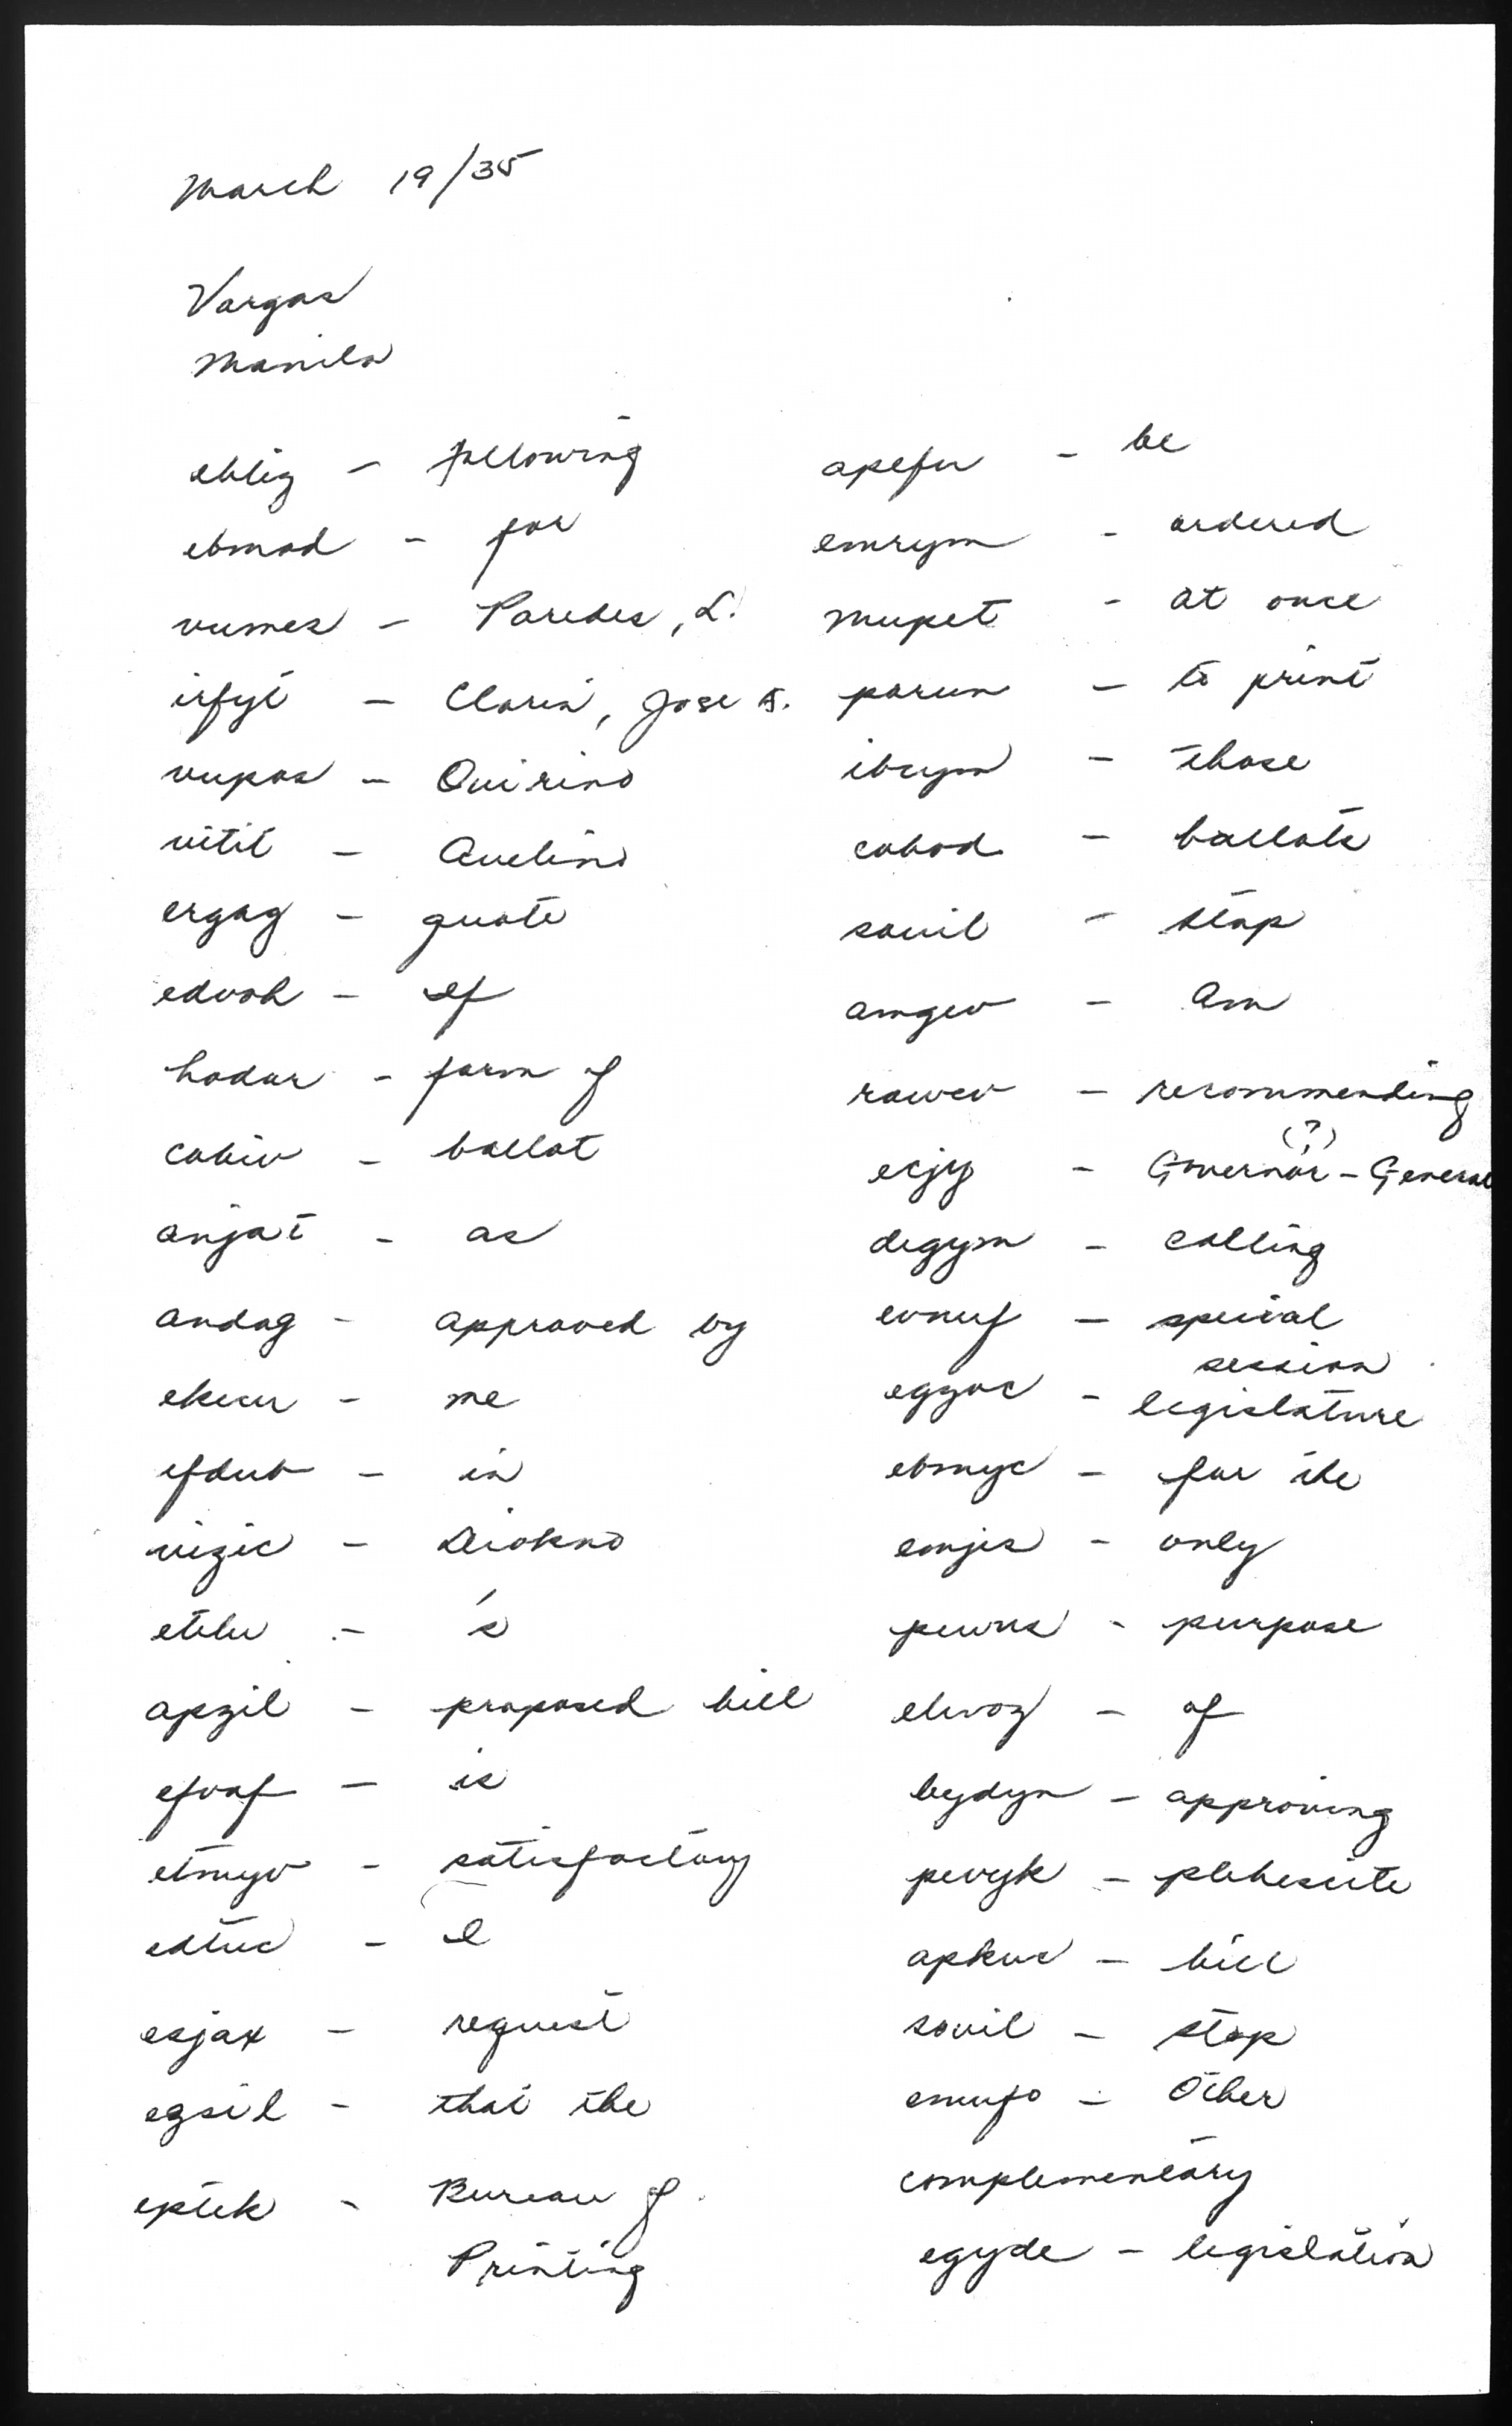 March 19/35
Vargas
Manila
eblig - following
ebmod - for
vumes - Paredes, Q.
irfyt - Clarin, Jose A.
vupos - Quirino
vitil - Avelino
ergag - quote
edvoh - if
hodur - form of
cobiv - ballot
anjat - as
andag - approved by
ekecu - me
efdub - in
vizic - Diokno
etilu - 's
apzil - proposed bill
efvaf - is
etmyv - satisfactory
edtuc - I
esjax - request
egsil - that the
eptek - Bureau of
Printing
apefu - be
emrym - ordered
mupet - at once
parun - to print
ibzym - those
cobod - ballots
sovil - stop
amgev - Am
rawev - recommending
(?)
ecjy - Governor-General
degym - calling
evnuf - special
session
egzuc - legislature
ebmyc - for the
emjis - only
puwns - purpose
elwoz - of
bydyn - approving
pevyk - plebescite
apkuc - bill
sovil - stop
emufo - Other
complementary
egyde - legislation